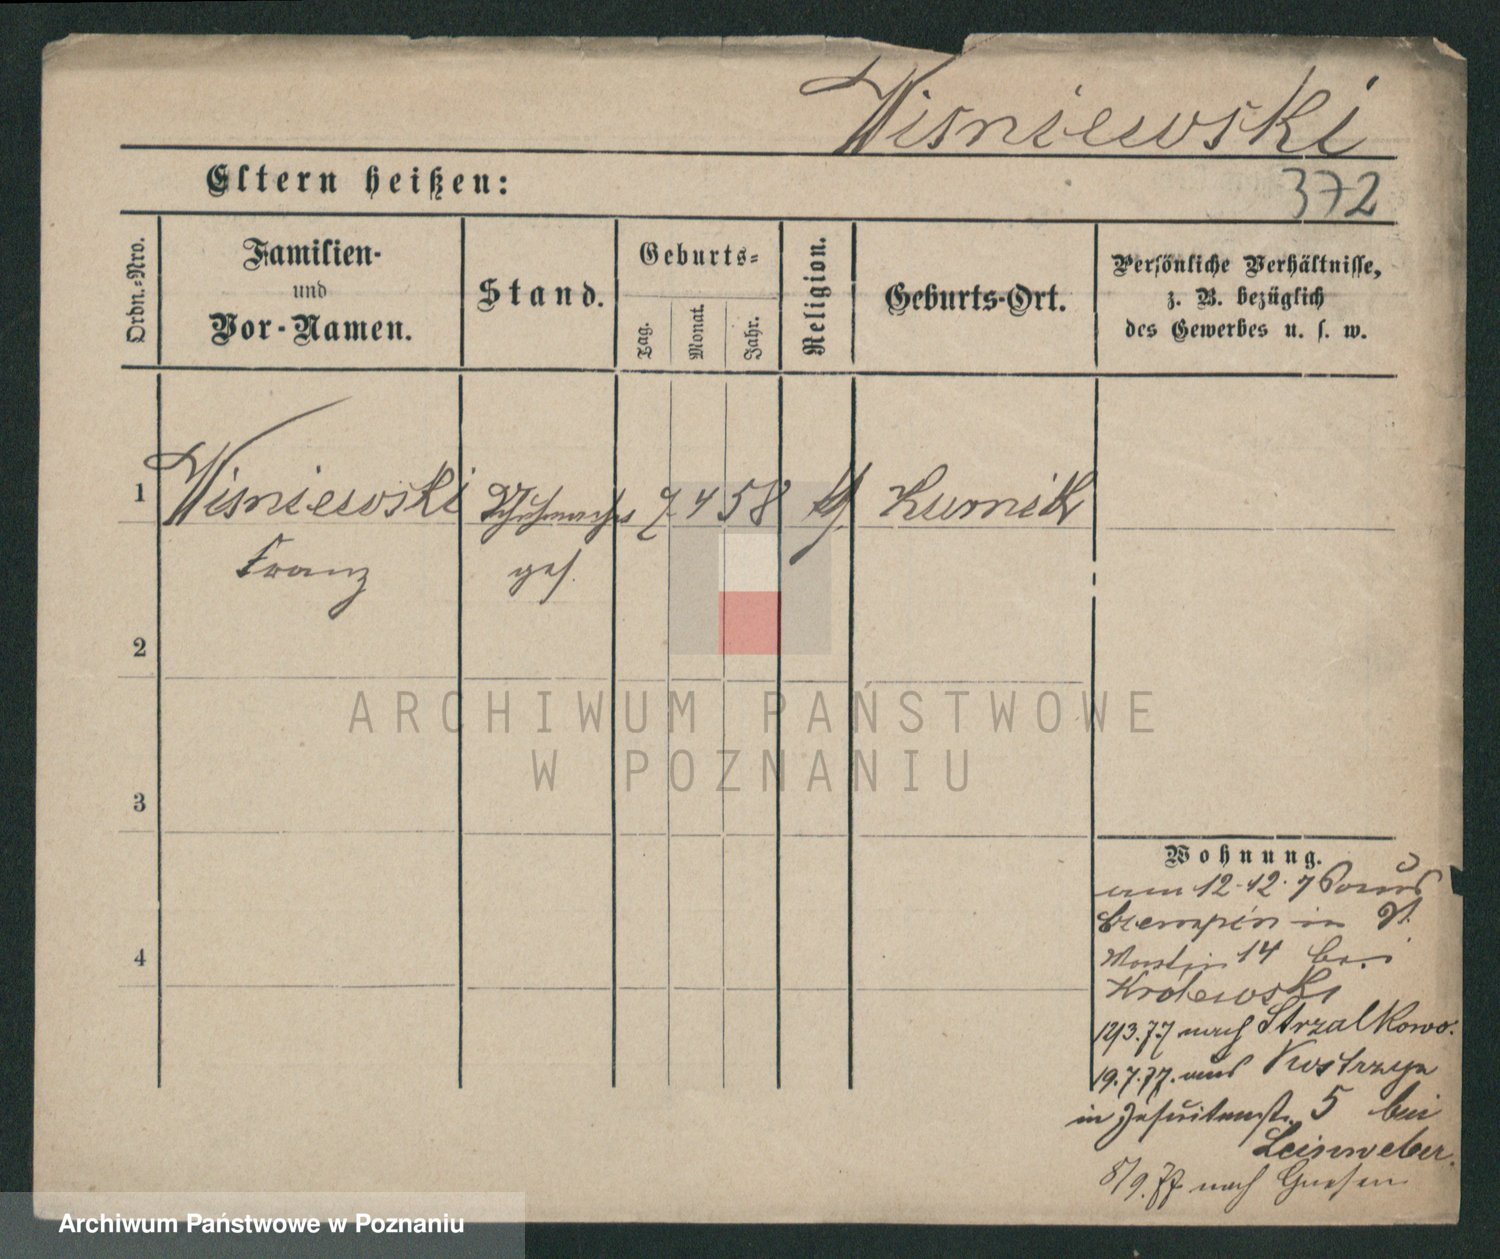 Wisniewski
Eltern heißen:
372
Ordn.-Nro.
Familien-
und
Vor-Namen.
Stand.
Geburts-
Tag.
Monat.
Jahr.
Religion.
Geburts-Ort.
Persönliche Verhältnisse,
z. B. bezüglich
des Gewerbes u. s. w.
1 Wisniewski 7 4 58 Kurnik
Franz ges.
2
3
4
ARCHIWUM PAŃSTWOWE
W POZNANIU
Wohnung.
am 12.12.7 aus
Czempin in St.
Martin 14 bei
Krolewski
12/3.77 nach Strzalkowo.
19.7.77. aus Kostrzyn
in Jesuitenstr. 5 bei
Leinweber.
5/9.77 nach Gnesen
Archiwum Państwowe w Poznaniu